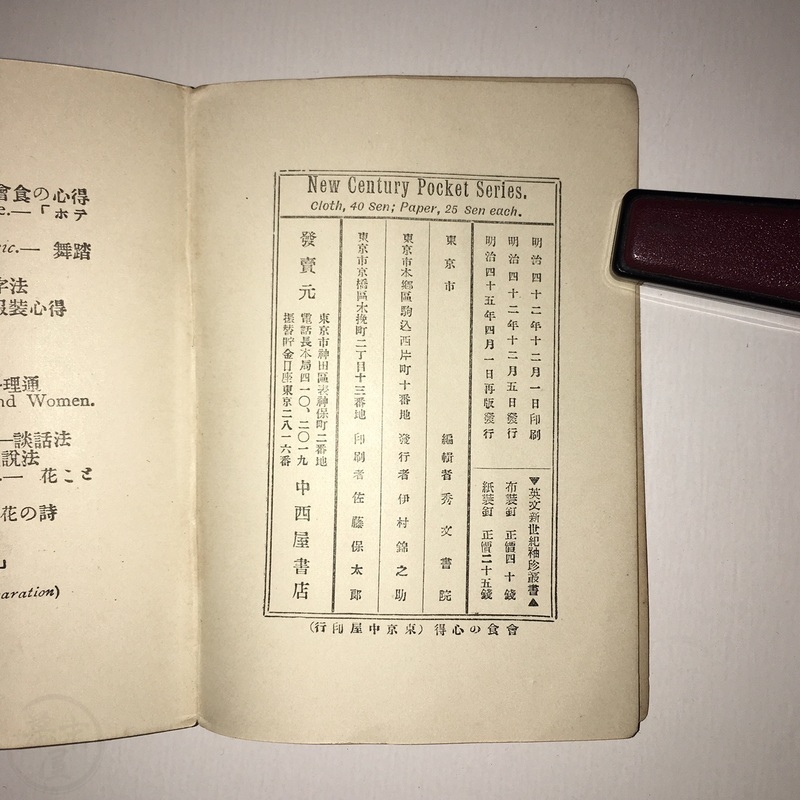 會食の心得
e.—「ホテ
sic.— 舞踏
字法
服裝心得
理通
nd Women.
—談話法
說法
— 花こと
花の詩
aration)
New Century Pocket Series.
Cloth, 40 Sen; Paper, 25 Sen each.
明治四十二年十二月一日印刷
明治四十二年十二月五日發行
明治四十五年四月一日再版發行
▼英文新世紀袖珍叢書▲
布裝釘 正價四十錢
紙裝釘 正價二十五錢
東京市 編輯者 秀文書院
東京市本鄉區駒込西片町十番地 發行者 伊村錦之助
東京市京橋區木挽町二丁目十三番地 印刷者 佐藤保太郎
發賣元
東京市神田區表神保町二番地
電話長本局四一〇、二〇一九
振替貯金口座東京二八一六番
中西屋書店
會食の心得（東京中屋印行）